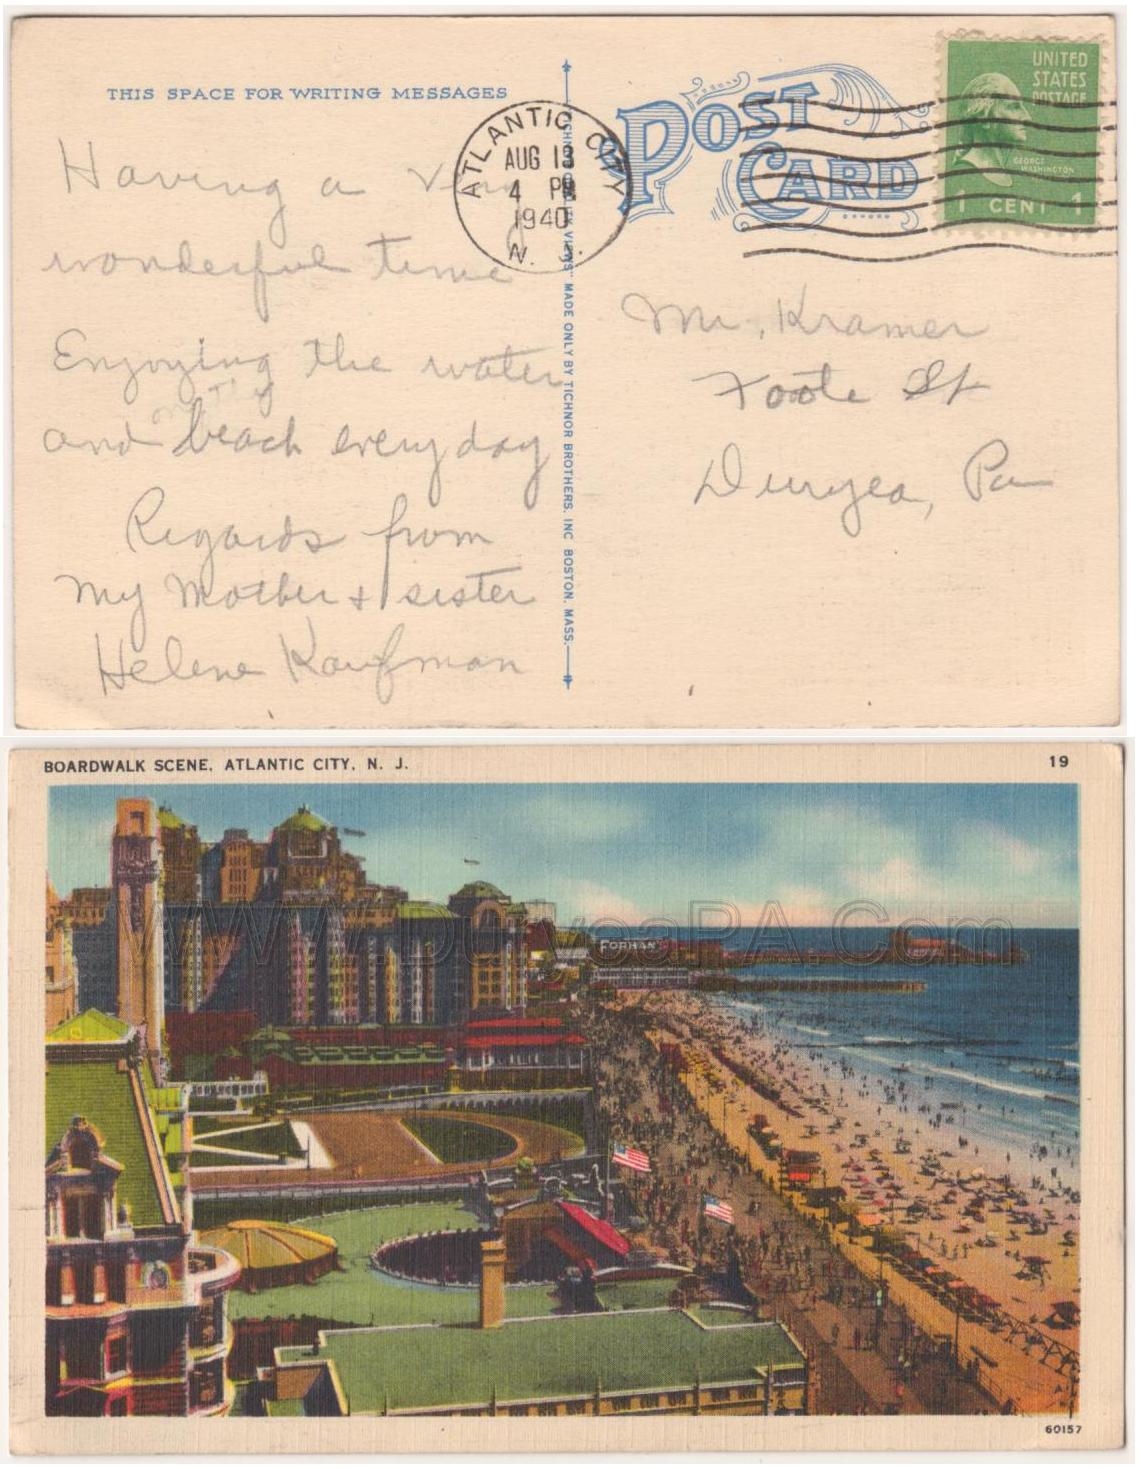 THIS SPACE FOR WRITING MESSAGES
POST CARD
ATLANTIC CITY
AUG 13
4 PM
1940
N. J.
UNITED
STATES
POSTAGE
GEORGE
WASHINGTON
1 CENT 1
Having a very
wonderful time
Enjoying the water
on the
and beach every day
Regards from
my Mother + sister
Helene Kaufman
VIEWS" MADE ONLY BY TICHNOR BROTHERS, INC BOSTON, MASS.
Mr. Kramer
Foote St
Duryea, Pa
BOARDWALK SCENE, ATLANTIC CITY, N. J.
19
www.DuryeaPA.Com
FORHAN'S
60157